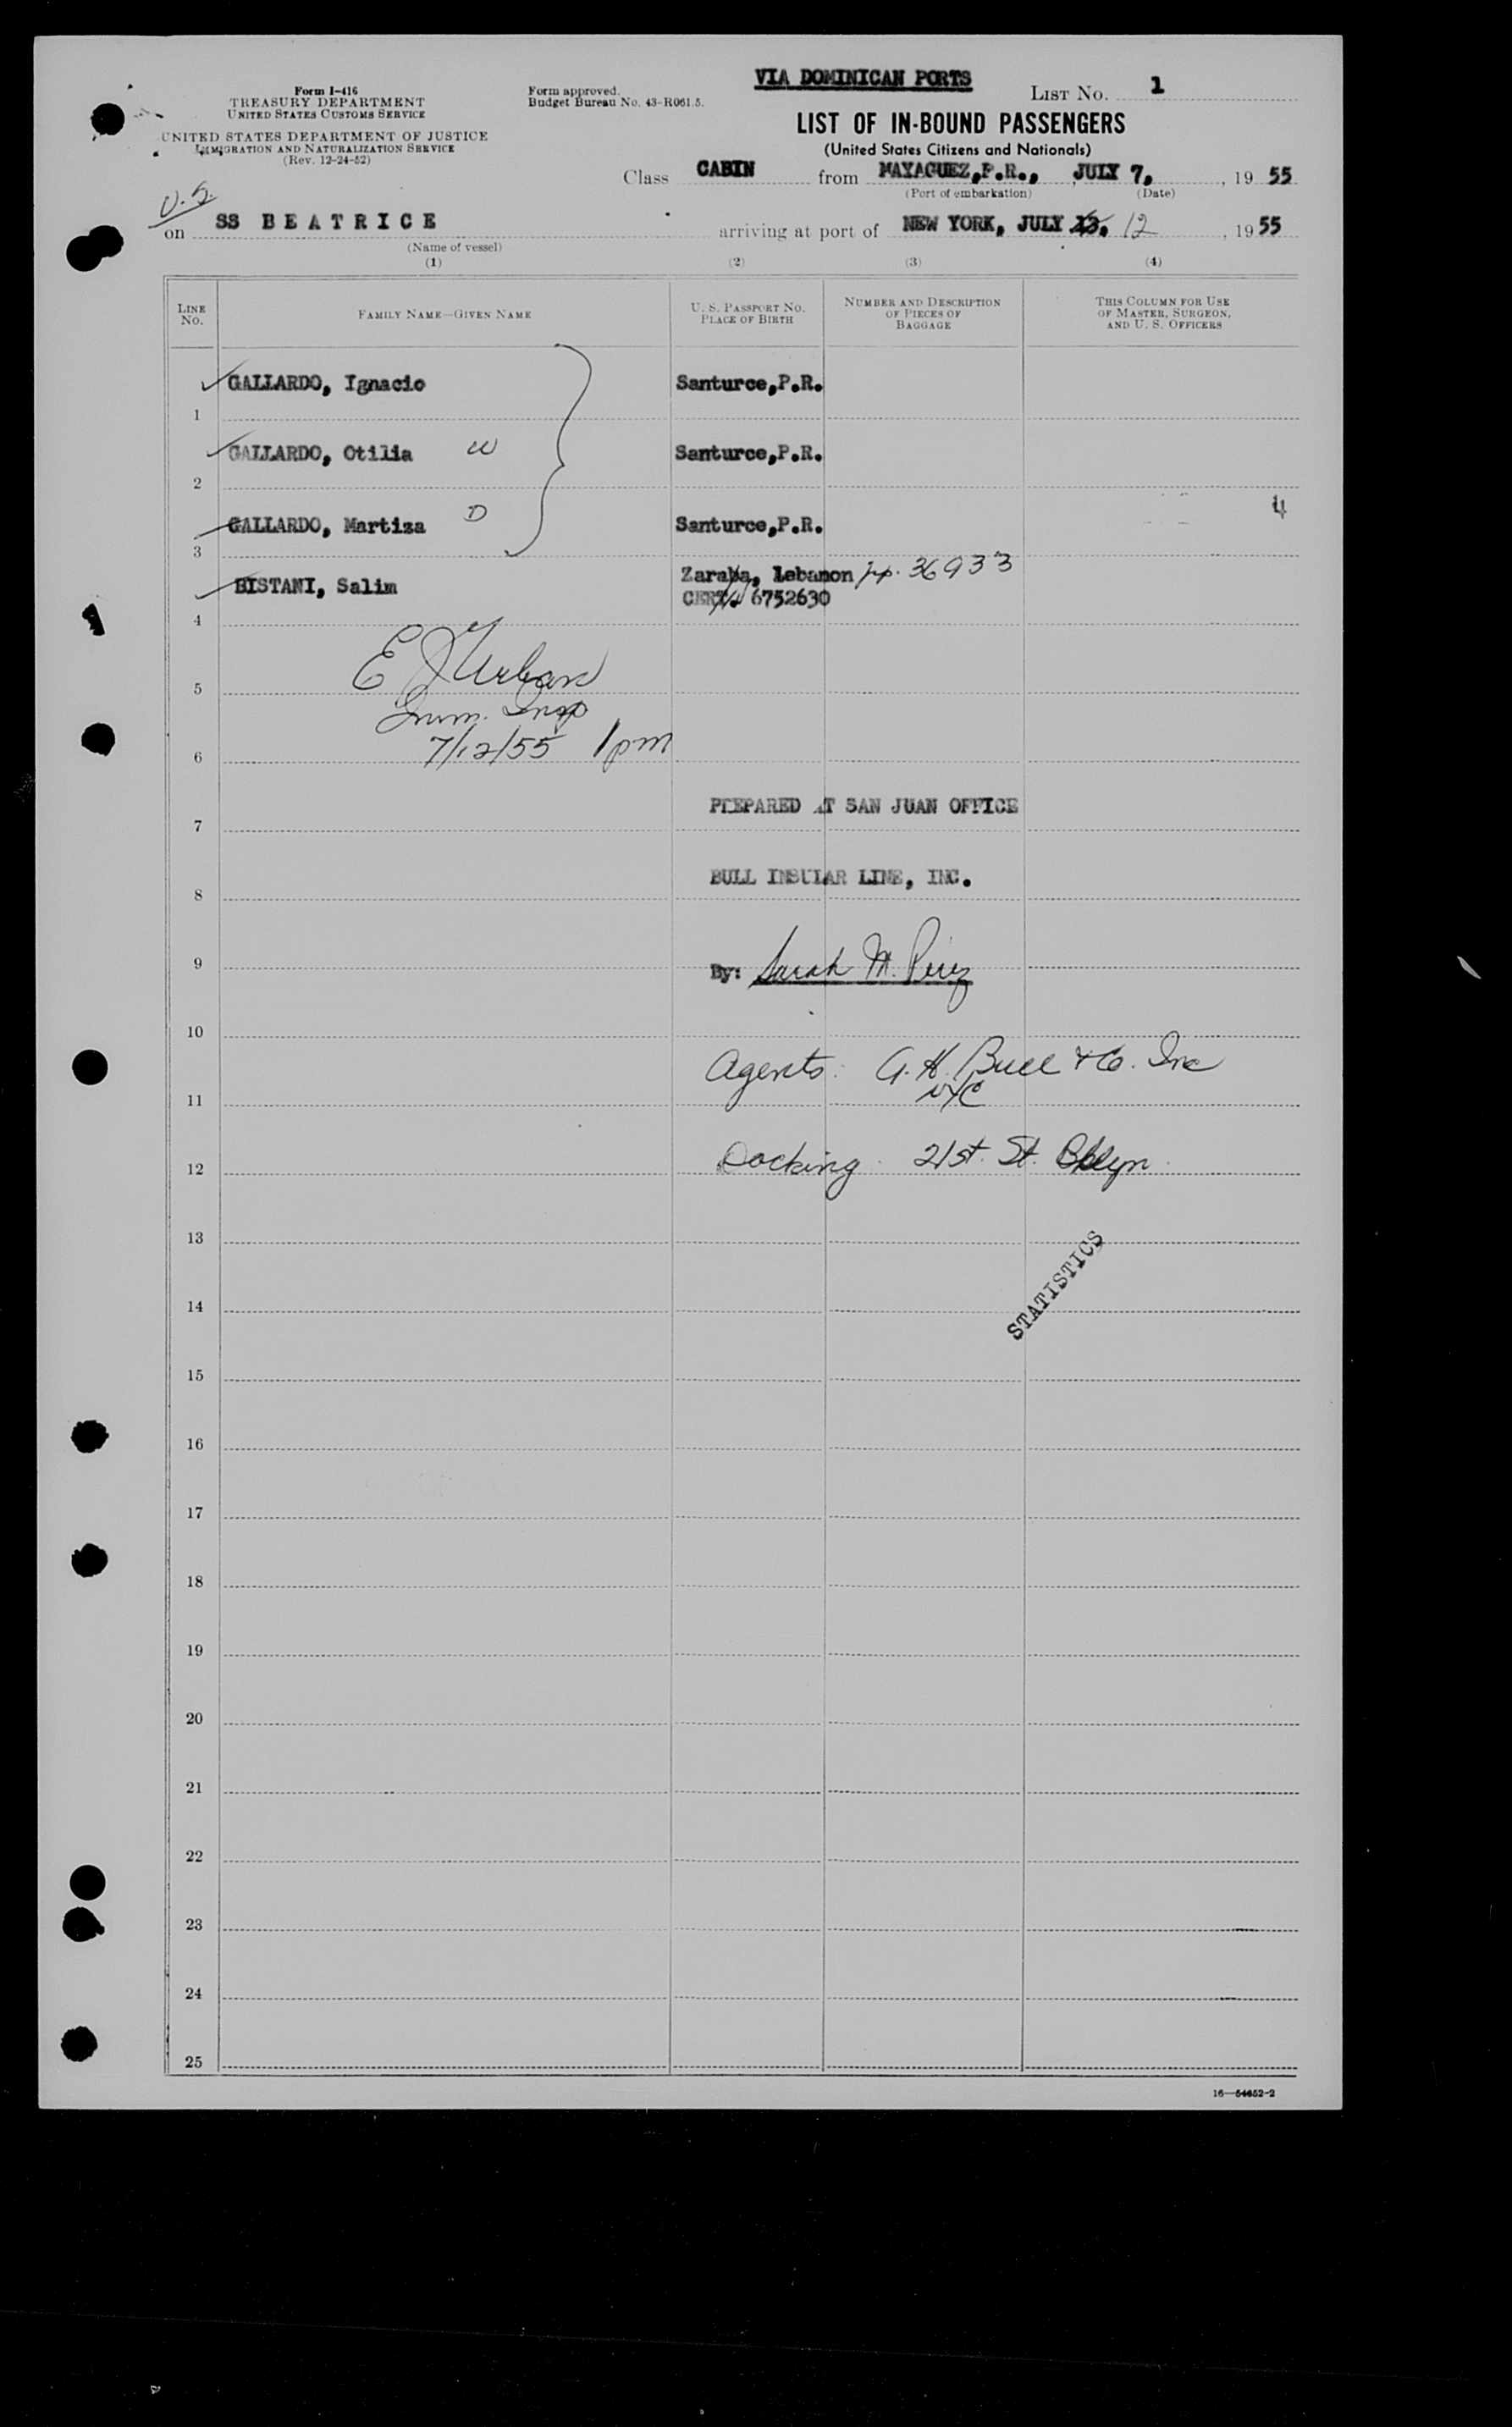 VIA DOMINICAN PORTS
Form I-416
TREASURY DEPARTMENT
UNITED STATES CUSTOMS SERVICE
UNITED STATES DEPARTMENT OF JUSTICE
IMMIGRATION AND NATURALIZATION SERVICE
(Rev. 12-24-52)
Form approved.
Budget Bureau No. 43-R061.5.
LIST No. 1
LIST OF IN-BOUND PASSENGERS
(United States Citizens and Nationals)
Class CABIN from MAYAGUEZ,P.R., JULY 7, , 19 55
(Port of embarkation) (Date)
U.S.
on SS BEATRICE arriving at port of NEW YORK, JULY 13, 12 , 19 55
(Name of vessel)
(1) (2) (3) (4)
LINE No. FAMILY NAME—GIVEN NAME U. S. PASSPORT No. PLACE OF BIRTH NUMBER AND DESCRIPTION OF PIECES OF BAGGAGE THIS COLUMN FOR USE OF MASTER, SURGEON, AND U. S. OFFICERS
GALLARDO, Ignacio Santurce,P.R.
1
GALLARDO, Otilia W Santurce,P.R.
2
GALLARDO, Martiza D Santurce,P.R. 4
3
BISTANI, Salim Zaraba, Lebanon 36933
CERT. 6752630
4
E J Urban
5
Imm. Insp
7/12/55 1pm
6
PREPARED AT SAN JUAN OFFICE
7
BULL INSULAR LINE, INC.
8
By: Sarah M. Perez
9
10
Agents: A.H. Bull & Co. Inc
NYC
11
Docking 21st. St. Bklyn
12
13
STATISTICS
14
15
16
17
18
19
20
21
22
23
24
25
16—54652-2